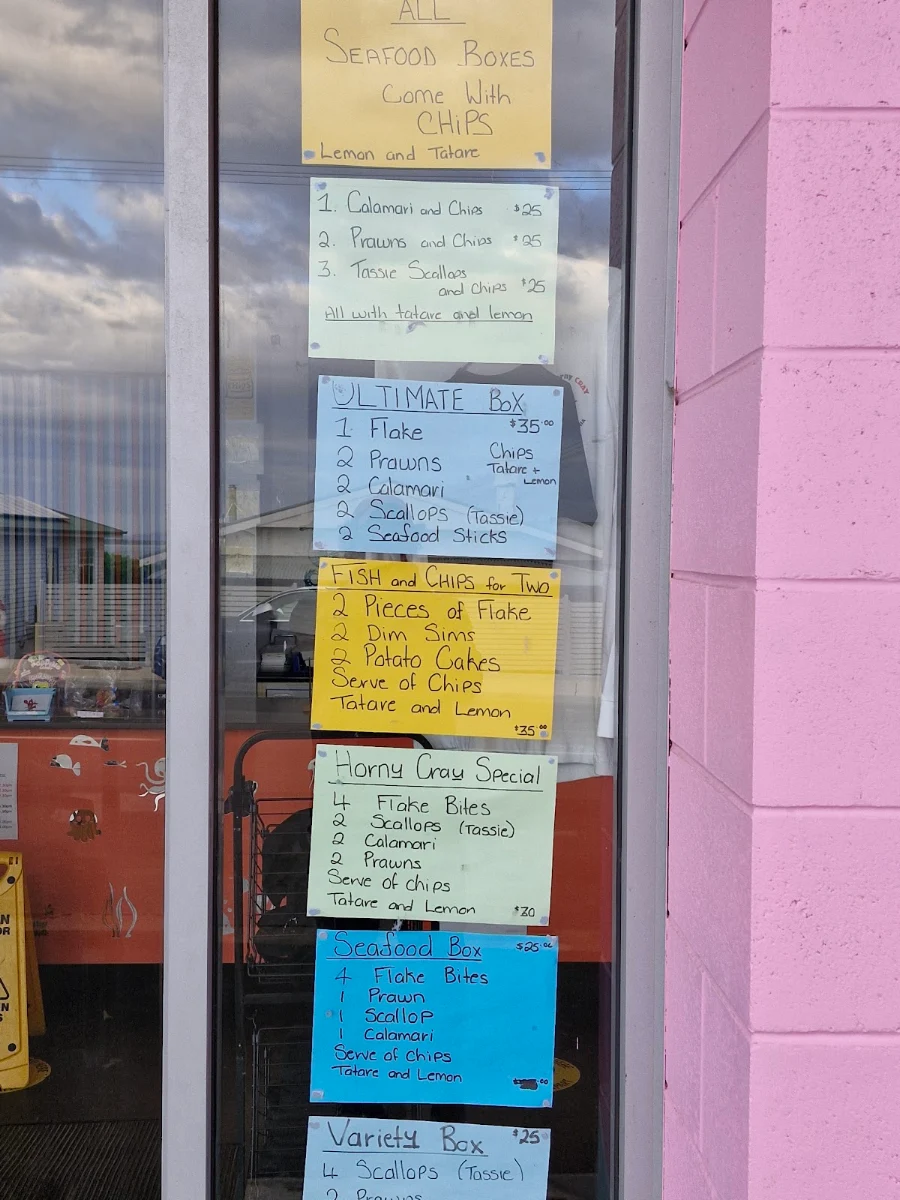 ALL
SEAFOOD BOXES
Come With
CHiPS
Lemon and Tatare
1. Calamari and Chips $25
2. Prawns and Chips $25
3. Tassie Scallops
and Chips $25
All with tatare and lemon
ULTIMATE BOX
$35.00
1 Flake
2 Prawns
Chips
Tatare +
Lemon
2 Calamari
2 Scallops (Tassie)
2 Seafood Sticks
FISH and CHIPS for Two
2 Pieces of Flake
2 Dim Sims
2 Potato Cakes
Serve of Chips
Tatare and Lemon
$35.00
Horny Cray Special
4 Flake Bites
2 Scallops (Tassie)
2 Calamari
2 Prawns
Serve of chips
Tatare and Lemon $30
Seafood Box $25.00
4 Flake Bites
1 Prawn
1 Scallop
1 Calamari
Serve of chips
Tatare and Lemon
Variety Box $25
4 Scallops (Tassie)
2 Prawns